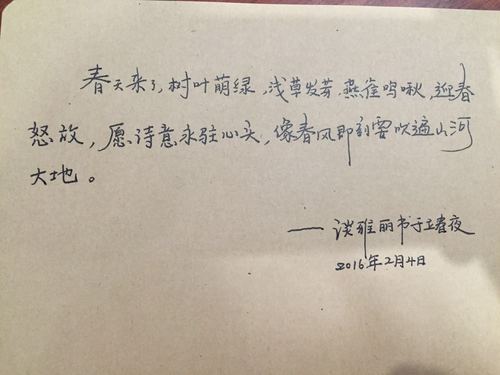 春天来了,树叶萌绿,浅草发芽,燕雀鸣啾,迎春
怒放,愿诗意永驻心头,像春风即到要吹遍山河
大地。
——谈雅丽书于立春夜
2016年2月4日